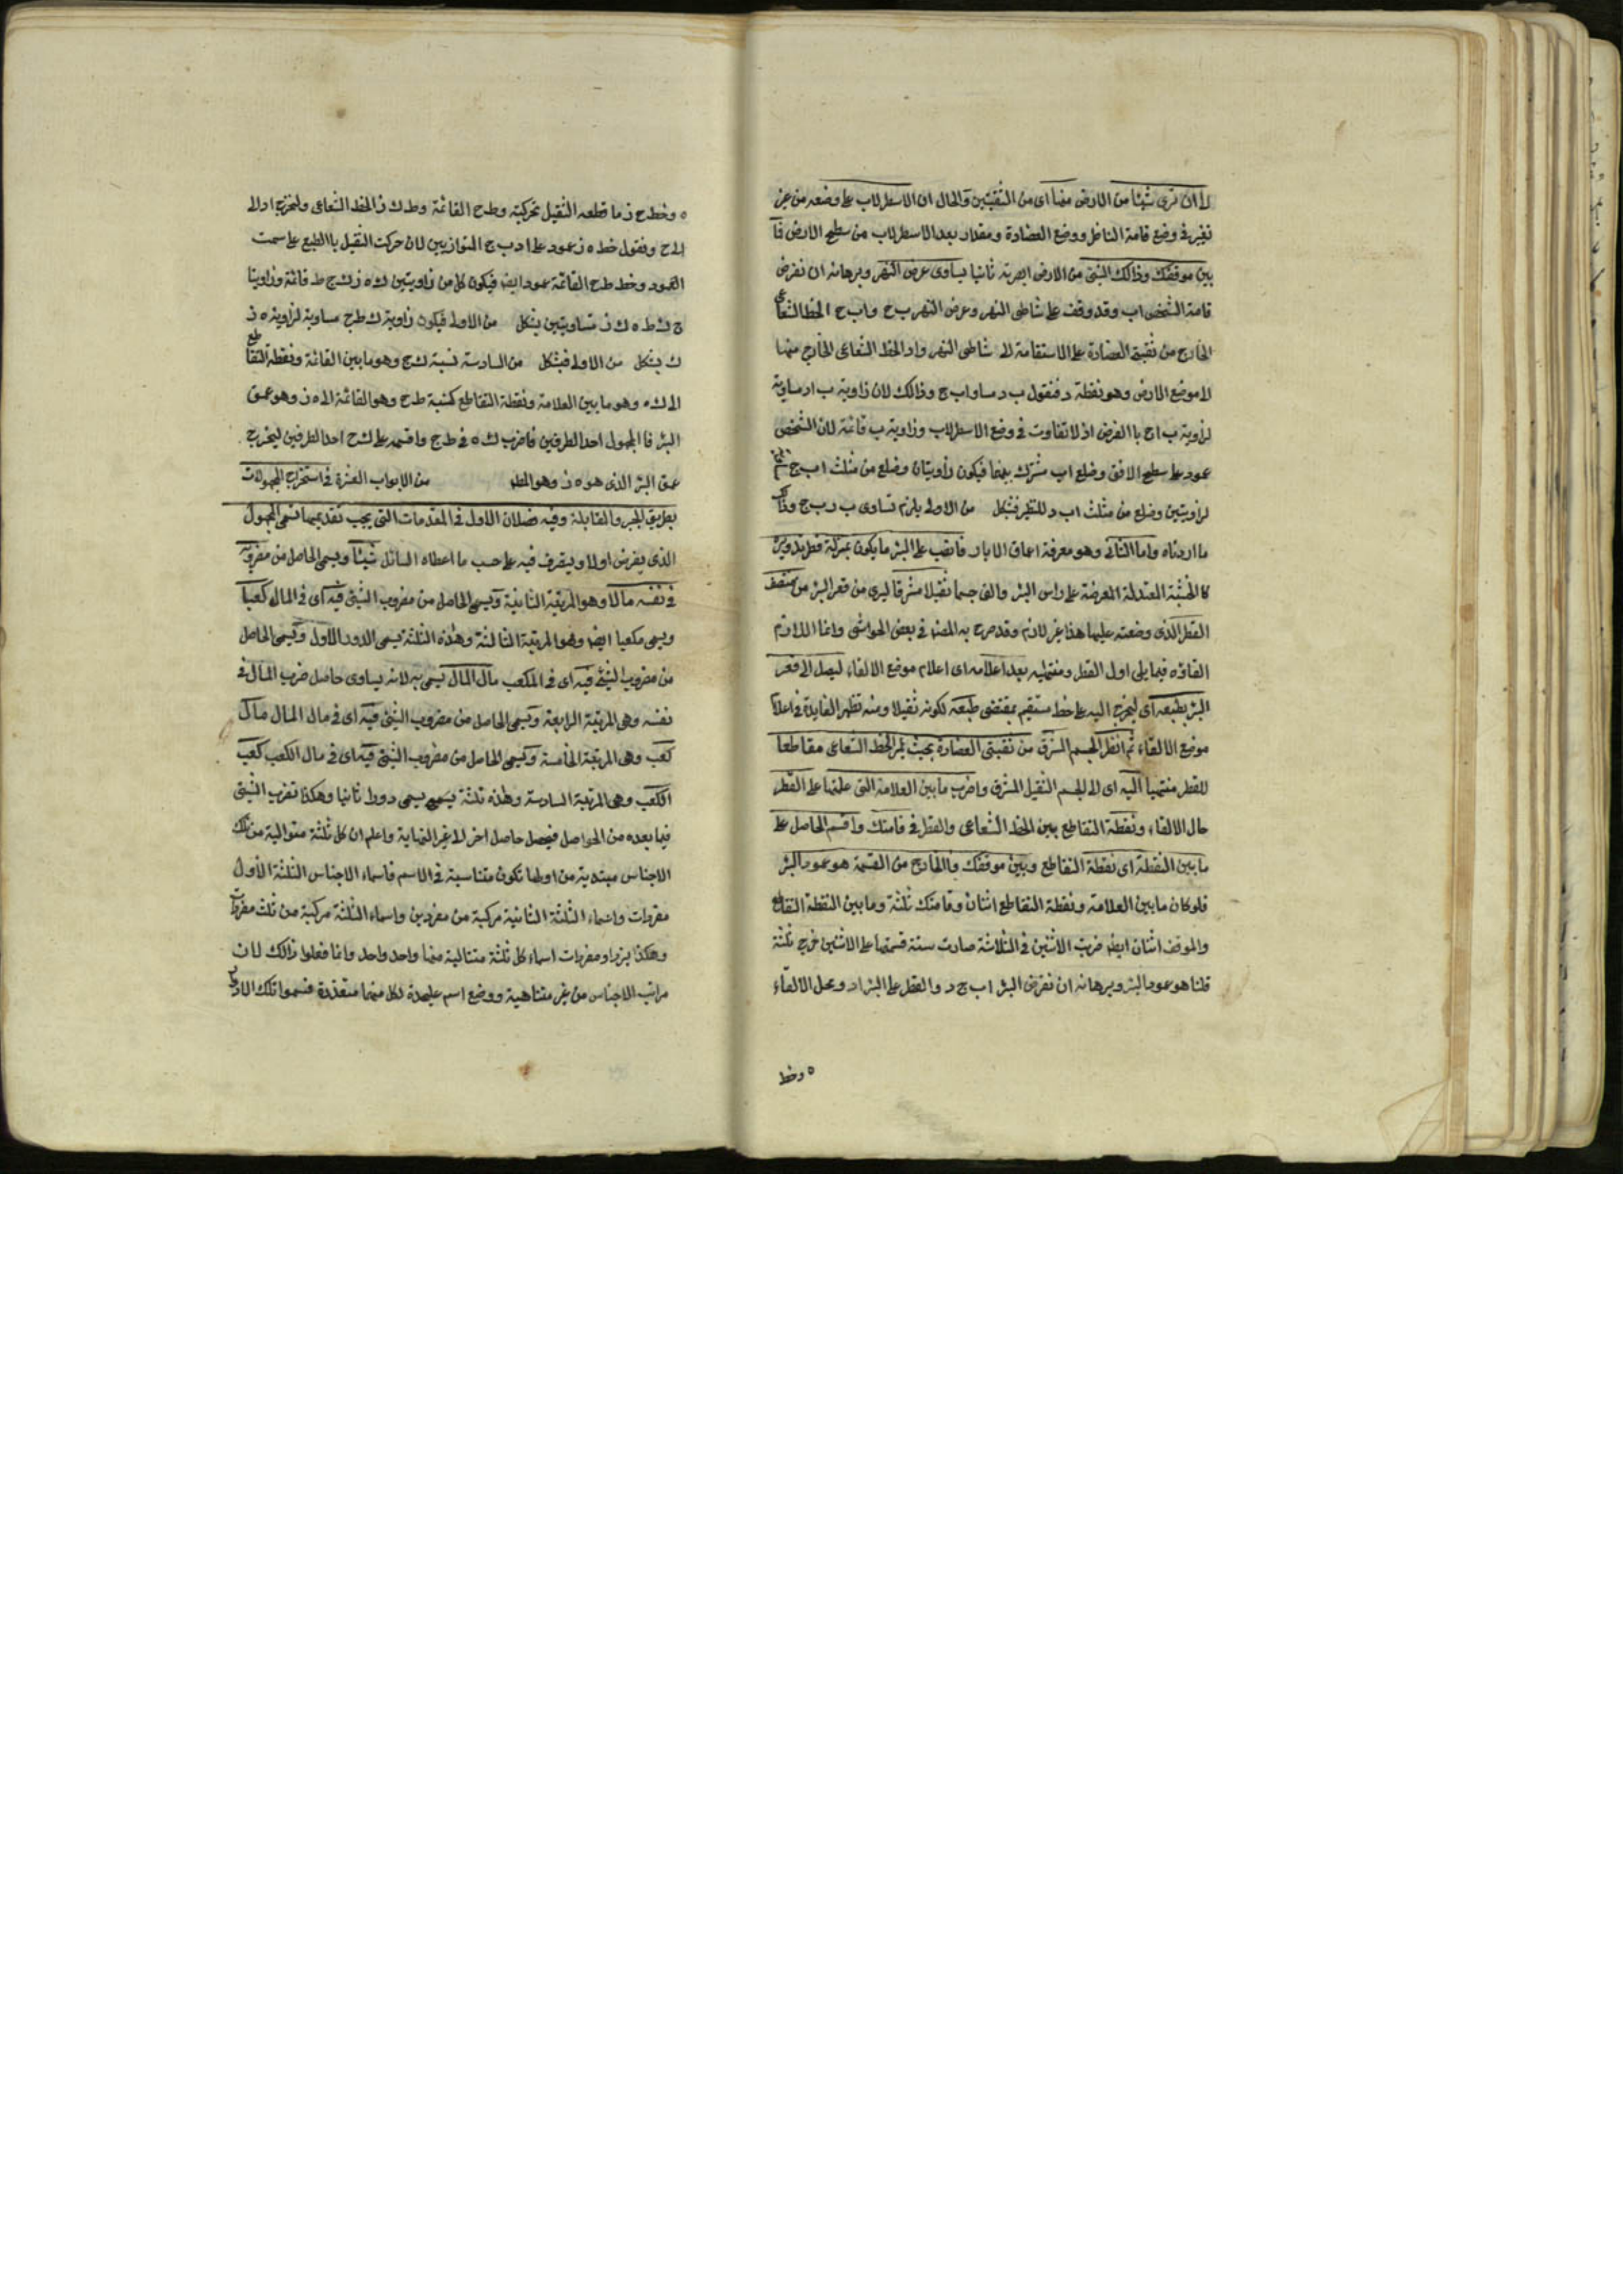 لا ان ترى شيئا من الارض منها اى من الثقبتين والحال ان الاسطرلاب على وضعه من غير
تغير فى وضع قامة الناظر ووضع العضادة ومقدار بعد الاسطرلاب من سطح الارض فما
بين موقفك وذالك الشئ من الارض ابصرته ثانيا يساوى عرض النهر وبرهانه ان نفرض
قامة الشخص اب وقد وقف على شاطى النهر وعرض النهر ب ج و اب ج الخط الشعاعى
الخارج من ثقبتى العضادة على الاستقامة الى شاطى النهر و اد الخط الشعاعى الخارج منها
لا موضع الارض وهو نقطة د فنقول ب د مساو اب ج وذالك لان زاوية ب اد مساوية
لزاوية ب اج باالفرض اذ لا تفاوت فى وضع الاسطرلاب وزاوية ب قائمة لان الشخص
عمود على سطح الافق وضلع اب مشترك بينهما فيكون زاويتان وضلع من مثلث اب ج
لزاويتين وضلع من مثلث اب د للنظير فبشكل من الاولى يلزم تساوى ب د ب ج وذاك
ما اردناه واما الثانى وهو معرفة اعماق الابار فانصب على البئر ما يكون بمنزلة قطر تدويره
كا الخشبة المعتدلة المعرضة على راس البئر والق جسما ثقيلا مشرقا ليرى من قعر البئر من منتصف
القطر الذى وضعته عليها هذا غير لازم وقد صرح به المصنف فى بعض الحواشى وانما اللازم
القاؤه فيما يلى اول القطر ومنتهيه بعد اعلامه اى اعلام موضع الالقاء ليصل الى قعر
البئر بطبعه اى ليخرج اليه على خط مستقيم بمقتضى طبعه لكونه ثقيلا ومنه تظهر الفايدة فى اعلام
موضع الالقاء ثم انظر الجسم المشرق من ثقبتى العضادة بحيث يمر الخط الشعاعى مقاطعا
للقطر منتهيا اليه اى الى الجسم الثقيل المشرق واضرب ما بين العلامة التى علمتها على القطر
حال الالقاء ونقطة التقاطع بين الخط الشعاعى والقطر فى قامتك واقسم الحاصل على
ما بين النقطة اى نقطة التقاطع وبين موقفك فاالخارج من القسمة هو عمود البئر
فلو كان ما بين العلامة ونقطة التقاطع اثنان وقامتك ثلثة وما بين النقطة التقاطع
والموقف اثنان ايضا ضربت الاثنين فى الثلاثة صارت ستة قسمتها على الاثنين خرج ثلثة
قلنا هو عمود البئر وبرهانه ان نفرض البئر اب ج د والقطر على البئر اد ومحل الالقاء
ه وخط
ه وخط ح ز ما قطعه الثقيل بحركته و ط ح القائمة و ط ك ز الخط الشعاعى وليخرج اد الى
الى ح ونقول خط ه ز عمود على اد ب ج المتوازيين لان حركت الثقيل باالطبع على سمت
العمود وخط ط ح القائمة عمود ايضا فيكون كل من زاويتين ك ه ز ك ج ط قائمة وزاويتا
ج ك ط ه ك ز متساويتين بشكل من الاولى فيكون زاوية ك ط ح مساوية لزاوية ه ز
ك بشكل من الاولى فبشكل من السادسة نسبة ك ج وهو ما بين القائمة ونقطة التقاطع
الى ك ه وهو ما بين العلامة ونقطة التقاطع كنسبة ط ح وهو القائمة الى ه ز وهو عمق
البئر فا المجهول احد الطرفين فاضرب ك ه فى ط ج واقسمه على ك ح احد الطرفين ليخرج
عمق البئر الذى هو ه ز وهو المطلوب من الابواب العشرة فى استخراج المجهولات
بطريق الجبر والمقابلة وفيه فصلان الاول فى المقدمات التى يجب تقديمها تسمى المجهول
الذى يفرض اولا ويتصرف فيه على حسب ما اعطاه السائل شيئا ويسمى الحاصل من مضروبه
فى نفسه مالا وهو المرتبة الثانية ويسمى الحاصل من مضروب الشئ فيه اى فى المال كعبا
ويسمى مكعبا ايضا وهو المرتبة الثالثة وهذه الثلثة يسمى الدور الاول ويسمى الحاصل
من مضروب الشئ فيه اى فى المكعب مال المال يسمى به لانه يساوى حاصل ضرب المال فى
نفسه وهى المرتبة الرابعة ويسمى الحاصل من مضروب الشئ فيه اى فى مال المال مال
كعب وهى المرتبة الخامسة ويسمى الحاصل من مضروب الشئ فيه اى فى مال الكعب كعب
الكعب وهى المرتبة السادسة وهذه ثلثة يسمى يسمى دورا ثانيا وهكذا تضرب الشئ
فيما بعده من الحواصل فيحصل حاصل اخر الى غير النهاية واعلم ان كل ثلثة متوالية من تلك
الاجناس مبتدية من اولها تكون متناسبة فى الاسم فاسماء الاجناس الثلثة الاول
مفردات واسماء الثلثة الثانية مركبة من مفردين واسماء الثلثة مركبة من ثلث مفردات
وهكذا يزداد مفردات اسماء كل ثلثة متتالية منها واحد واحد وانما فعلوا ذالك لان
مراتب الاجناس من غير متناهية ووضع اسم عليحدة لكل منها متعذرة فسموا تلك الادوار